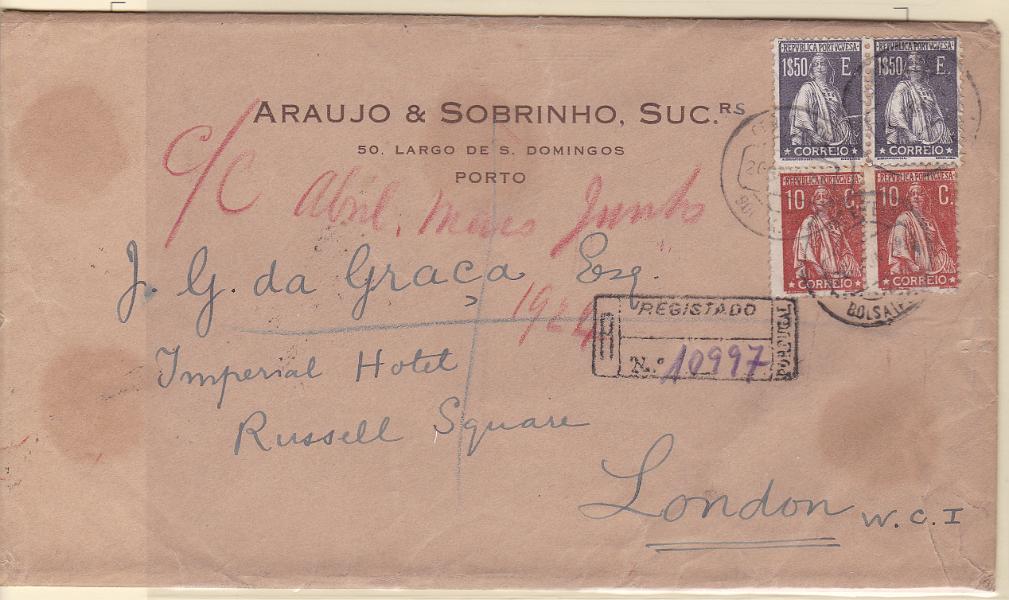 REPUBLICA PORTUGUESA REPUBLICA PORTUGUESA
1$50 E. 1$50 E.
CORREIO CORREIO
REPUBLICA PORTUGUESA REPUBLICA PORTUGUESA
10 C. 10 C.
CORREIO CORREIO
ARAUJO & SOBRINHO, SUC.RS
50, LARGO DE S. DOMINGOS
PORTO
c/c Abril, Maio Junho
1924
J. G. da Graça Esq.
R REGISTADO
N.º 10997
PORTUGAL
BOLSA
Imperial Hotel
Russell Square
London W.C.I